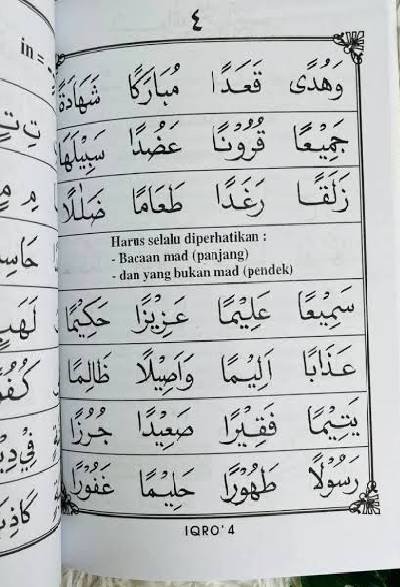 ٤
وَهُدًى قَعَدًا مُبَارَكًا شَهَادَةً
جَمِيْعًا قُرُوْنًا عَضُدًا سَبِيْلَهَا
زَلَقًا رَغَدًا طَعَامًا ضَلٰلًا
Harus selalu diperhatikan :
- Bacaan mad (panjang)
- dan yang bukan mad (pendek)
سَمِيْعًا عَلِيْمًا عَزِيْزًا حَكِيْمًا
عَذَابًا اَلِيْمًا وَاَصِيْلًا ظَالِمًا
يَتِيْمًا فَقِيْرًا صَعِيْدًا جُرُزًا
رَسُوْلًا طَهُوْرًا حَلِيْمًا غَفُوْرًا
IQRO' 4
in =